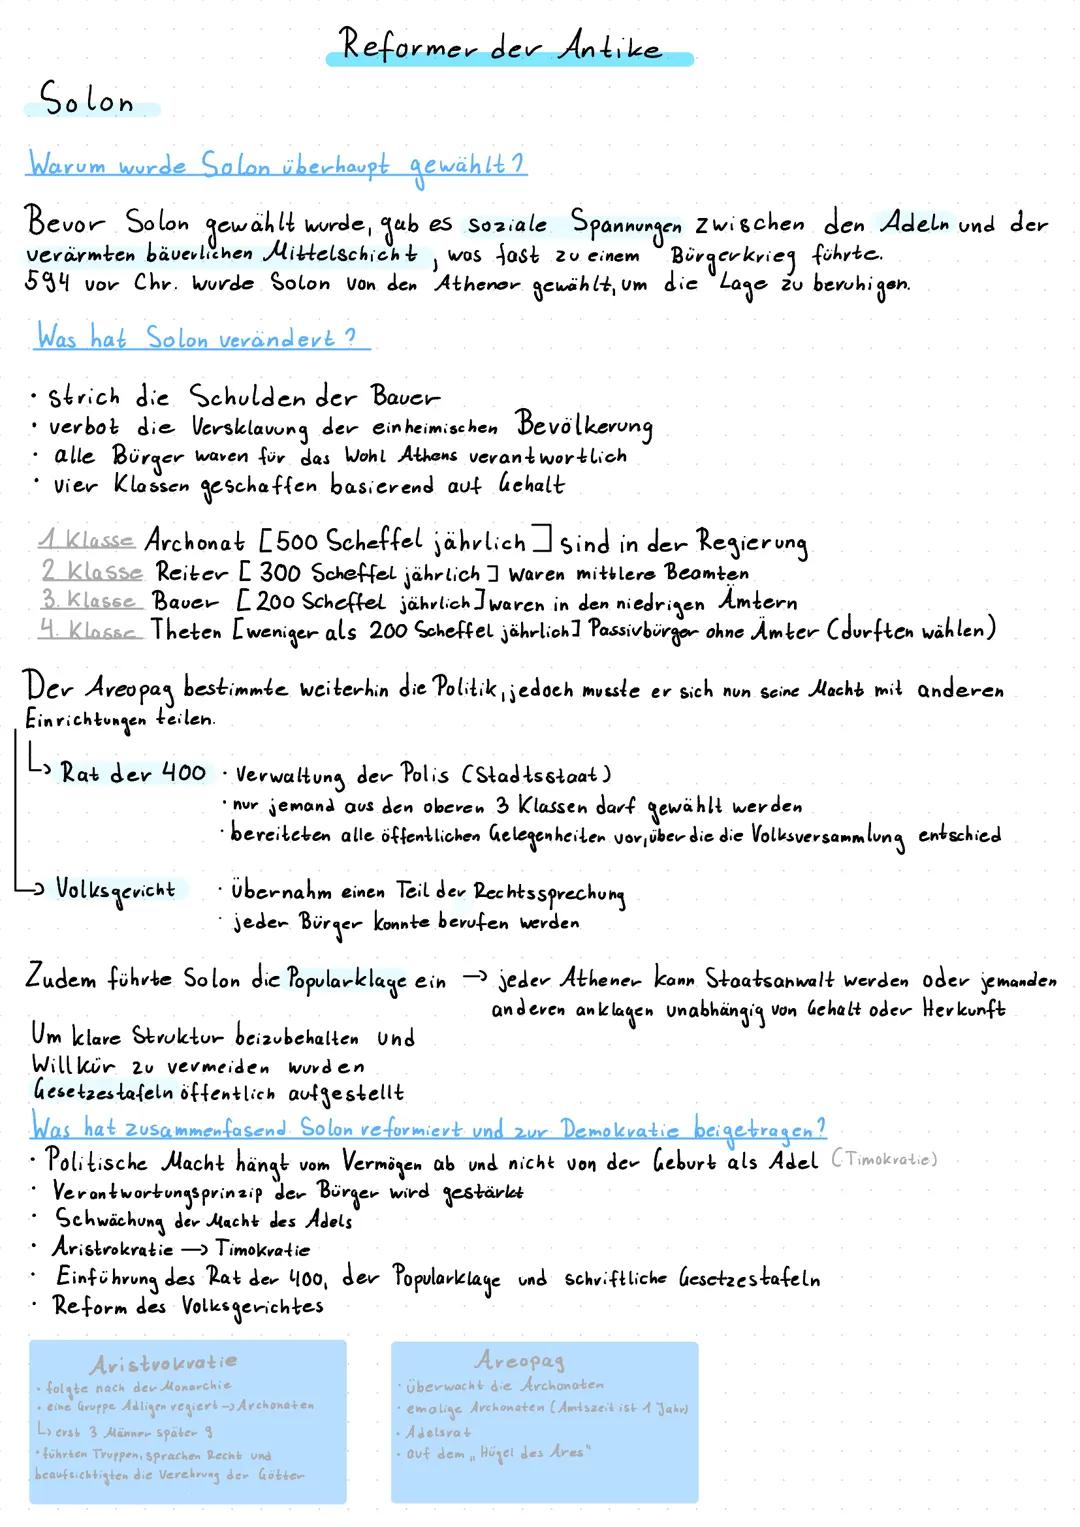 Reformer der Antike
Solon
Warum wurde Solon überhaupt gewählt?
Bevor Solon gewählt wurde, gab es soziale Spannungen zwischen den Adeln und der
verärmten bäuerlichen Mittelschicht, was fast zu einem Bürgerkrieg führte.
594 vor Chr. wurde Solon von den Athener gewählt, um die Lage zu beruhigen.
Was hat Solon verändert?
• strich die Schulden der Bauer
• verbot die Versklavung der einheimischen Bevölkerung
• alle Bürger waren für das Wohl Athens verantwortlich
• vier Klassen geschaffen basierend auf Gehalt
1. Klasse Archonat [500 Scheffel jährlich] sind in der Regierung
2. Klasse Reiter [300 Scheffel jährlich] waren mittlere Beamten
3. Klasse Bauer [200 Scheffel jährlich] waren in den niedrigen Ämtern
4. Klasse Theten [weniger als 200 Scheffel jährlich] Passivbürger ohne Ämter (durften wählen)
Der Areopag bestimmte weiterhin die Politik, jedoch musste er sich nun seine Macht mit anderen
Einrichtungen teilen.
↳ Rat der 400 • Verwaltung der Polis (Stadtsstaat)
• nur jemand aus den oberen 3 Klassen darf gewählt werden
• bereiteten alle öffentlichen Gelegenheiten vor, über die die Volksversammlung entschied
↳ Volksgericht • Übernahm einen Teil der Rechtssprechung
• jeder Bürger konnte berufen werden
Zudem führte Solon die Popularklage ein → jeder Athener kann Staatsanwalt werden oder jemanden
anderen anklagen unabhängig von Gehalt oder Herkunft
Um klare Struktur beizubehalten und
Willkür zu vermeiden wurden
Gesetzestafeln öffentlich aufgestellt
Was hat zusammenfasend Solon reformiert und zur Demokratie beigetragen?
• Politische Macht hängt vom Vermögen ab und nicht von der Geburt als Adel (Timokratie)
• Verantwortungsprinzip der Bürger wird gestärkt
• Schwächung der Macht des Adels
• Aristrokratie → Timokratie
• Einführung des Rat der 400, der Popularklage und schriftliche Gesetzestafeln
• Reform des Volksgerichtes
Aristrokratie
• folgte nach der Monarchie
• eine Gruppe Adligen regiert → Archonaten
↳ erst 3 Männer später 9
• führten Truppen, sprachen Recht und
beaufsichtigten die Verehrung der Götter
Areopag
• überwacht die Archonaten
• emalige Archonaten (Amtszeit ist 1 Jahr)
• Adelsrat
• auf dem „Hügel des Ares"